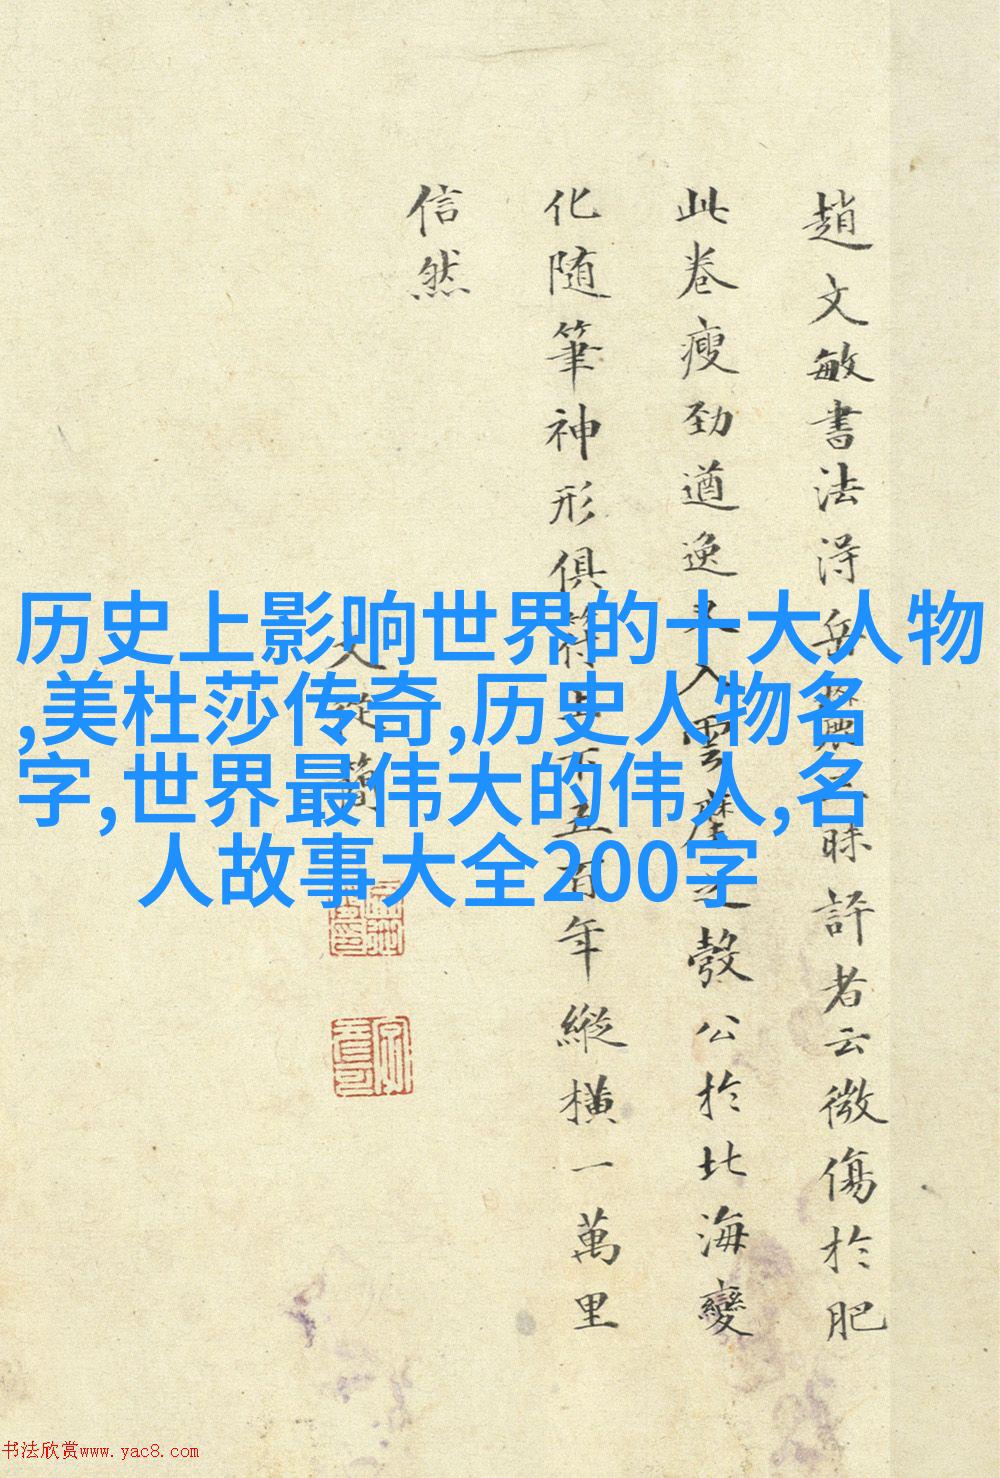 趙文敏書法得岳麓三昧評者云微傷於肥
此卷瘦劲遒逸又入雲麾之彀公於北海變
化随筆神形俱符上下五百年縱橫一萬里
信然
文從簡
历史上影响世界的十大人物
,美杜莎传奇,历史人物名
字,世界最伟大的伟人,名
人故事大全200字
书法欣赏www.yac8.com